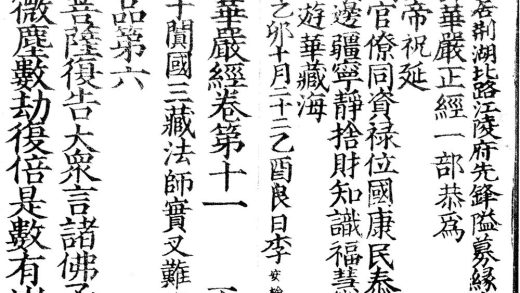 荆湖北路江陵府先鋒隘募緣
華嚴正經一部恭爲
帝祝延
官僚同資禄位國康民泰
邊疆寧靜捨財知識福慧
遊華藏海
卯十月二十二乙酉良日李安
華嚴經卷第十一
于闐國三藏法師實叉難
品第六
菩薩復告大衆言諸佛子
微塵數劫復倍是數有